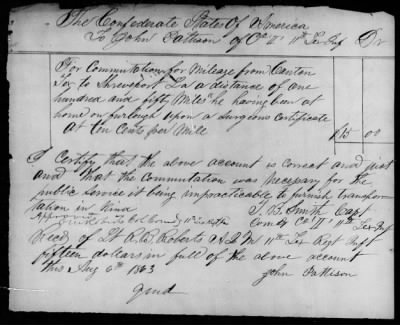 The Confederate States Of America
To John Pattison of Co "I" 11th Tex Inf Dr
For Commutation for Mileage from Canton
Tex to Shreveport La a distance of one
hundred and fifty Miles he having been at
home on furlough upon a Surgeons Certificate
at ten Cents per Mile $15 00
I Certify that the above account is Correct and just
and that the Commutation was necessary for the
public Service it being impracticable to furnish transpor
tation in Kind
T. B. Smith Capt
Comdg Co "I" 11th Tex Inf
Approved
Col Comdg 11th Tex Inf
Recd of Lt R. B. Roberts A Q M 11th Tex Regt Inf
fifteen dollars in full of the above account
this Aug 6th 1863
John Pattison